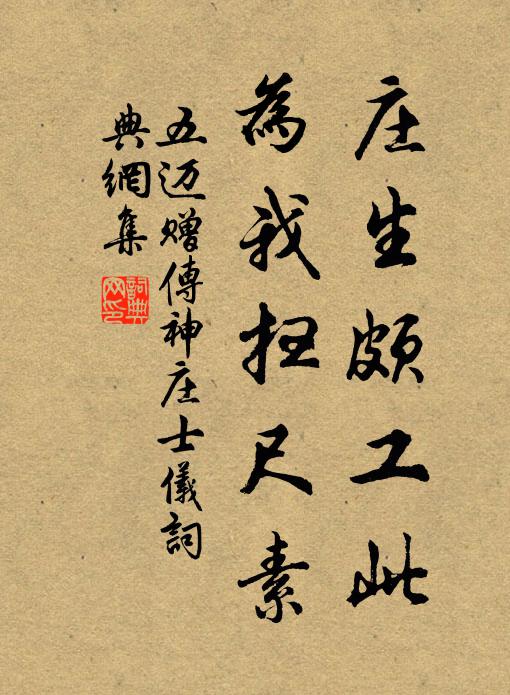 庄生頗工此
為我扫尺素
五迈赠傳神庄士儀詞
典網集
詞典
网印